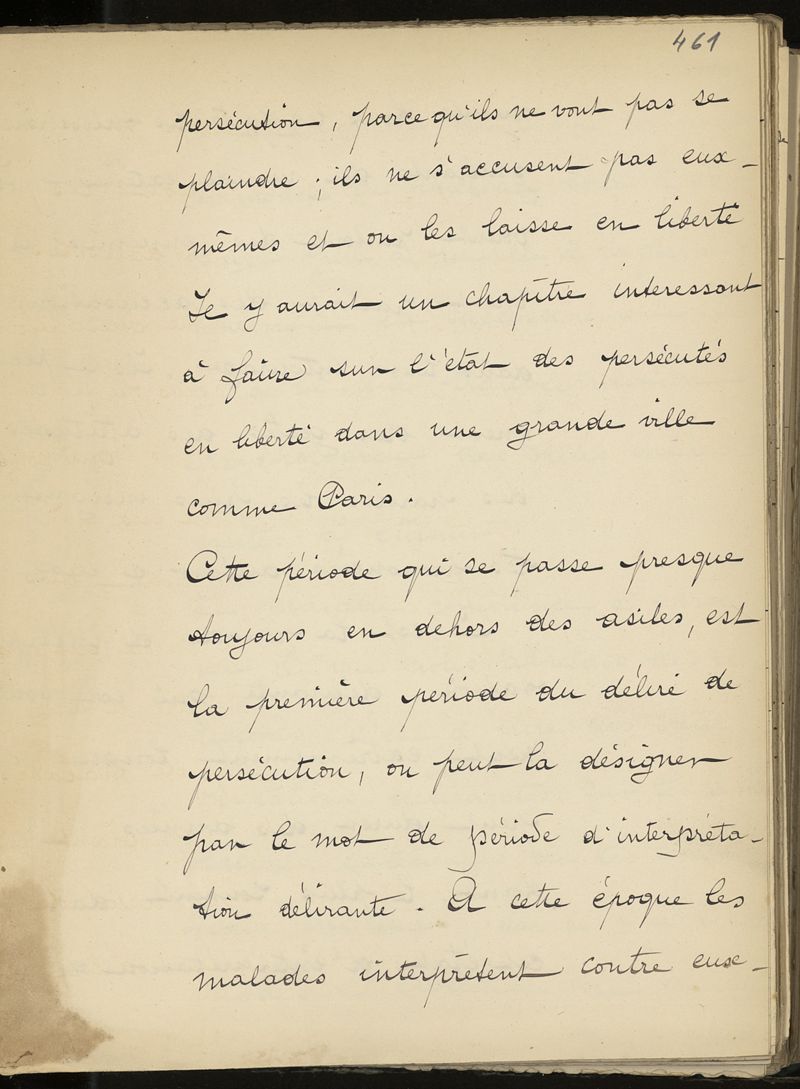 461
persécution, parce qu'ils ne vont pas se
plaindre ; ils ne s'accusent pas eux-
mêmes et on les laisse en liberté
Il y aurait un chapître interessant
à faire sur l'état des persécutés
en liberté dans une grande ville
comme Paris.
Cette période qui se passe presque
toujours en dehors des asiles, est
la première période du délire de
persécution, on peut la désigner
par le mot de période d'interpréta-
tion délirante. A cette époque les
malades interprétent contre eux-